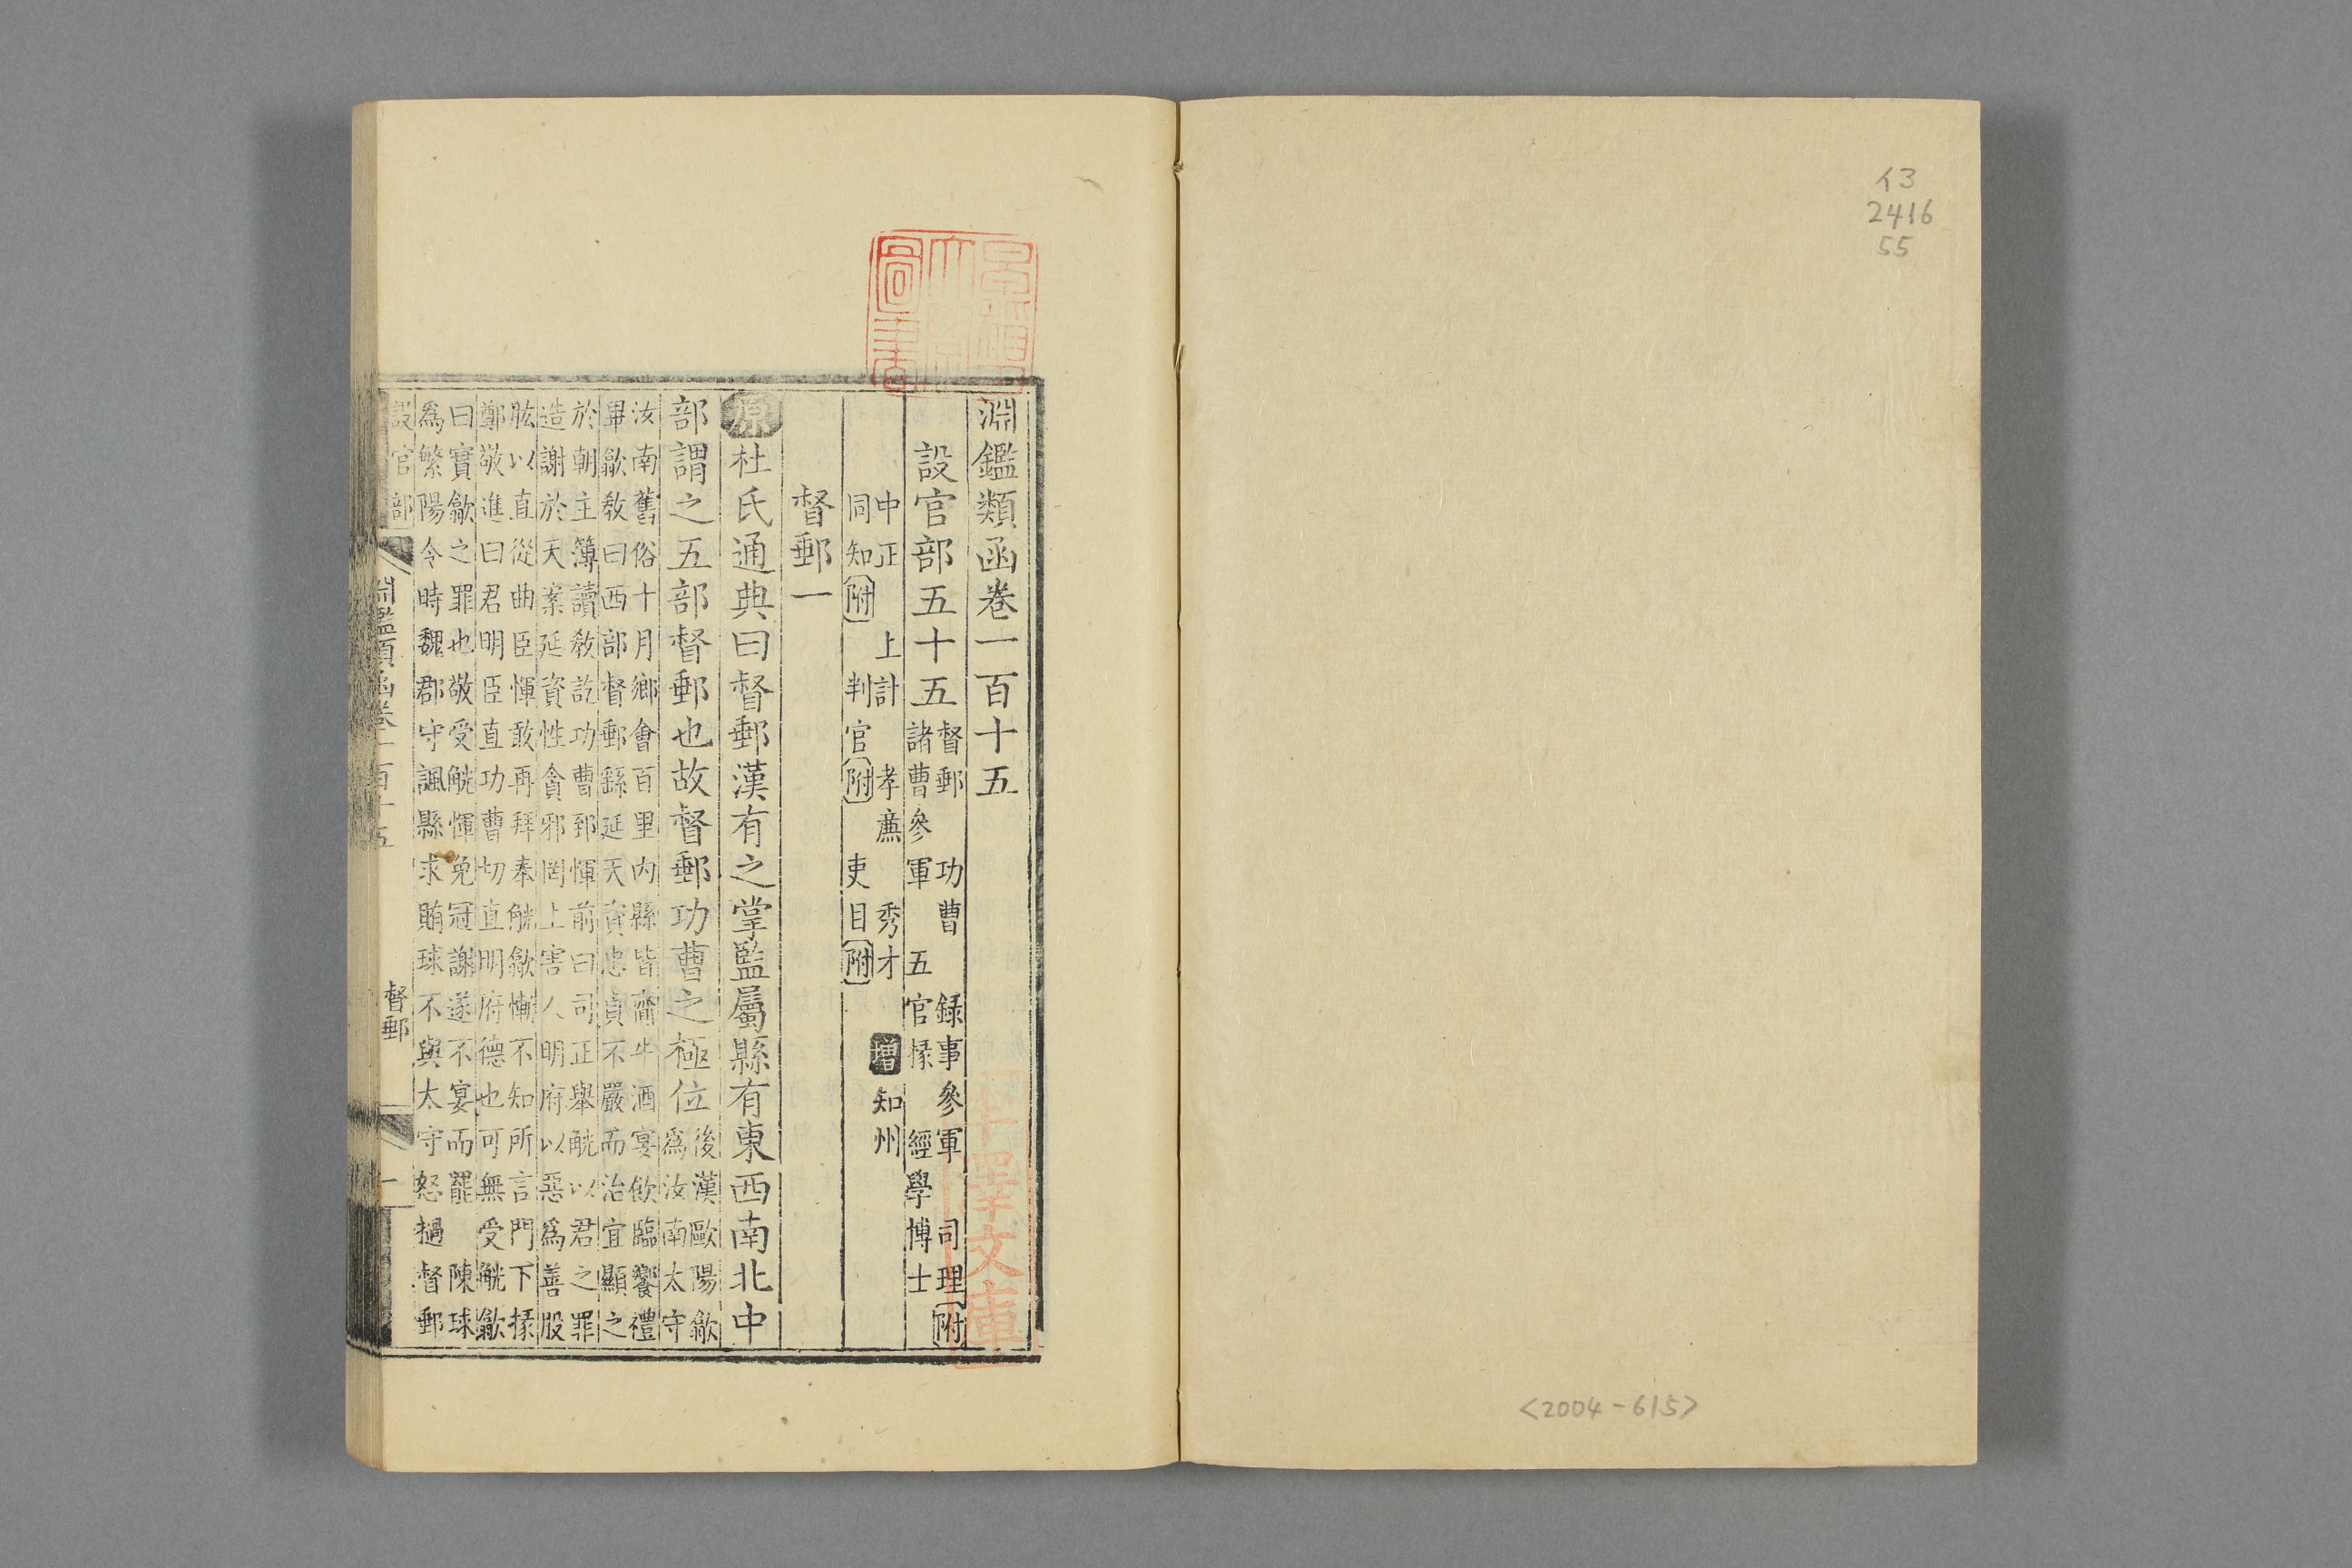 イ3
2416
55
<2004-615>
淵鑑類函卷一百十五
設官部五十五
督郵 功曹 録事參軍 司理附
諸曹參軍 五官掾 經學博士
中正 上計 孝廉 秀才 增 知州
同知附 判官附 吏目附
督郵一
原杜氏通典曰督郵漢有之掌監屬縣有東西南北中
部謂之五部督郵也故督郵功曹之極位
後漢歐陽歙
爲汝南太守
汝南舊俗十月鄉會百里内縣皆齎牛酒宴飲臨饗禮
畢歙敎曰西部督郵繇延天資忠貞不嚴而治宜顯之
於朝主簿讀敎訖功曹郅惲前曰司正舉觥以君之罪
造謝於天案延資性貪邪罔上害人明府以惡爲善股
肱以直從曲臣惲敢再拜奉觥歙慚不知所言門下掾
鄭敬進曰君明臣直功曹切直明府德也可無受觥歙
曰實歙之罪也敬受觥惲免冠謝遂不宴而罷 陳球
爲繁陽令時魏郡守諷縣求賄球不與太守怒撾督郵
設官部
淵鑑類函卷一百十五
督郵
一
圖書
文庫